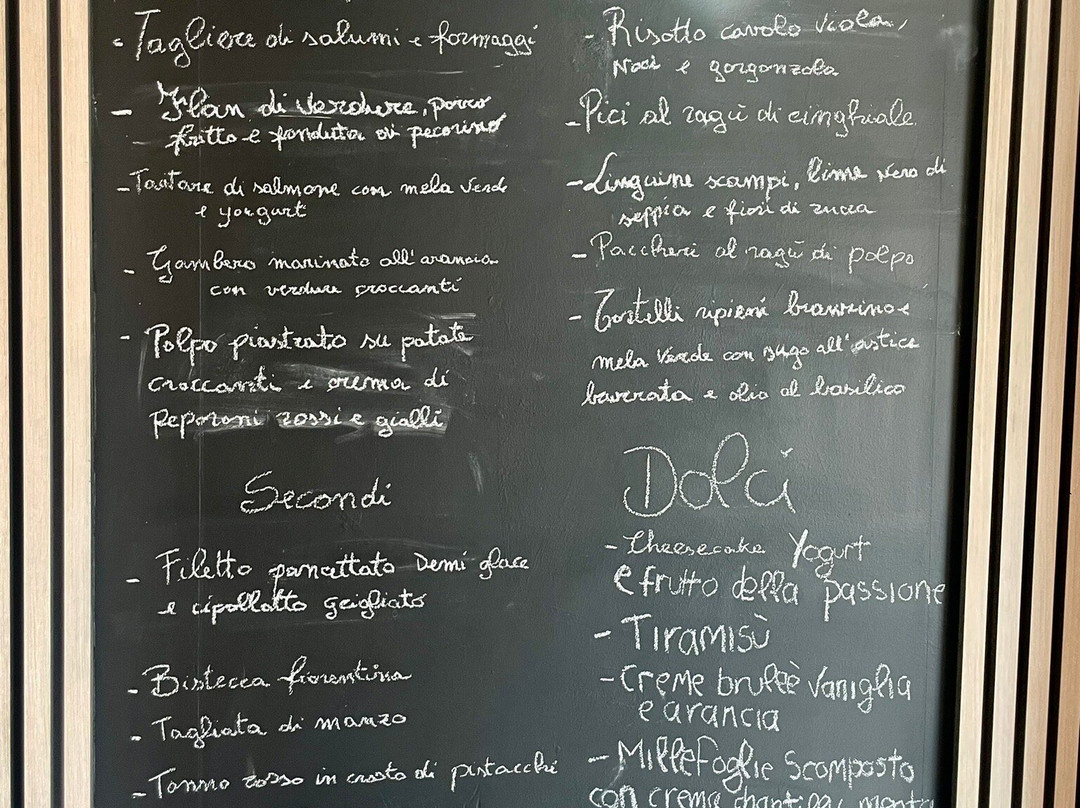 - Tagliere di salumi e formaggi
- Flan di verdure, porro
fritto e fonduta di pecorino
- Tartare di salmone con mela verde
e yorgurt
- Gambero marinato all'arancia
con verdure croccanti
- Polpo piastrato su patate
croccanti e crema di
peperoni rossi e gialli
Secondi
- Filetto pancettato Demi glace
e cipollotto grigliato
- Bistecca fiorentina
- Tagliata di manzo
- Tonno rosso in crosta di pistacchi
- Risotto cavolo viola,
Noci e gorgonzola
- Pici al ragù di cinghiale
- Linguine scampi, lime nero di
seppia e fiori di zucca
- Paccheri al ragù di polpo
- Tortelli ripieni branzino e
mela verde con sugo all'astice
burrata e olio al basilico
Dolci
- Cheesecake Yogurt
e frutto della passione
- TIRAMISÙ
- Creme bruleè vaniglia
e arancia
- Millefoglie scomposto
con crema